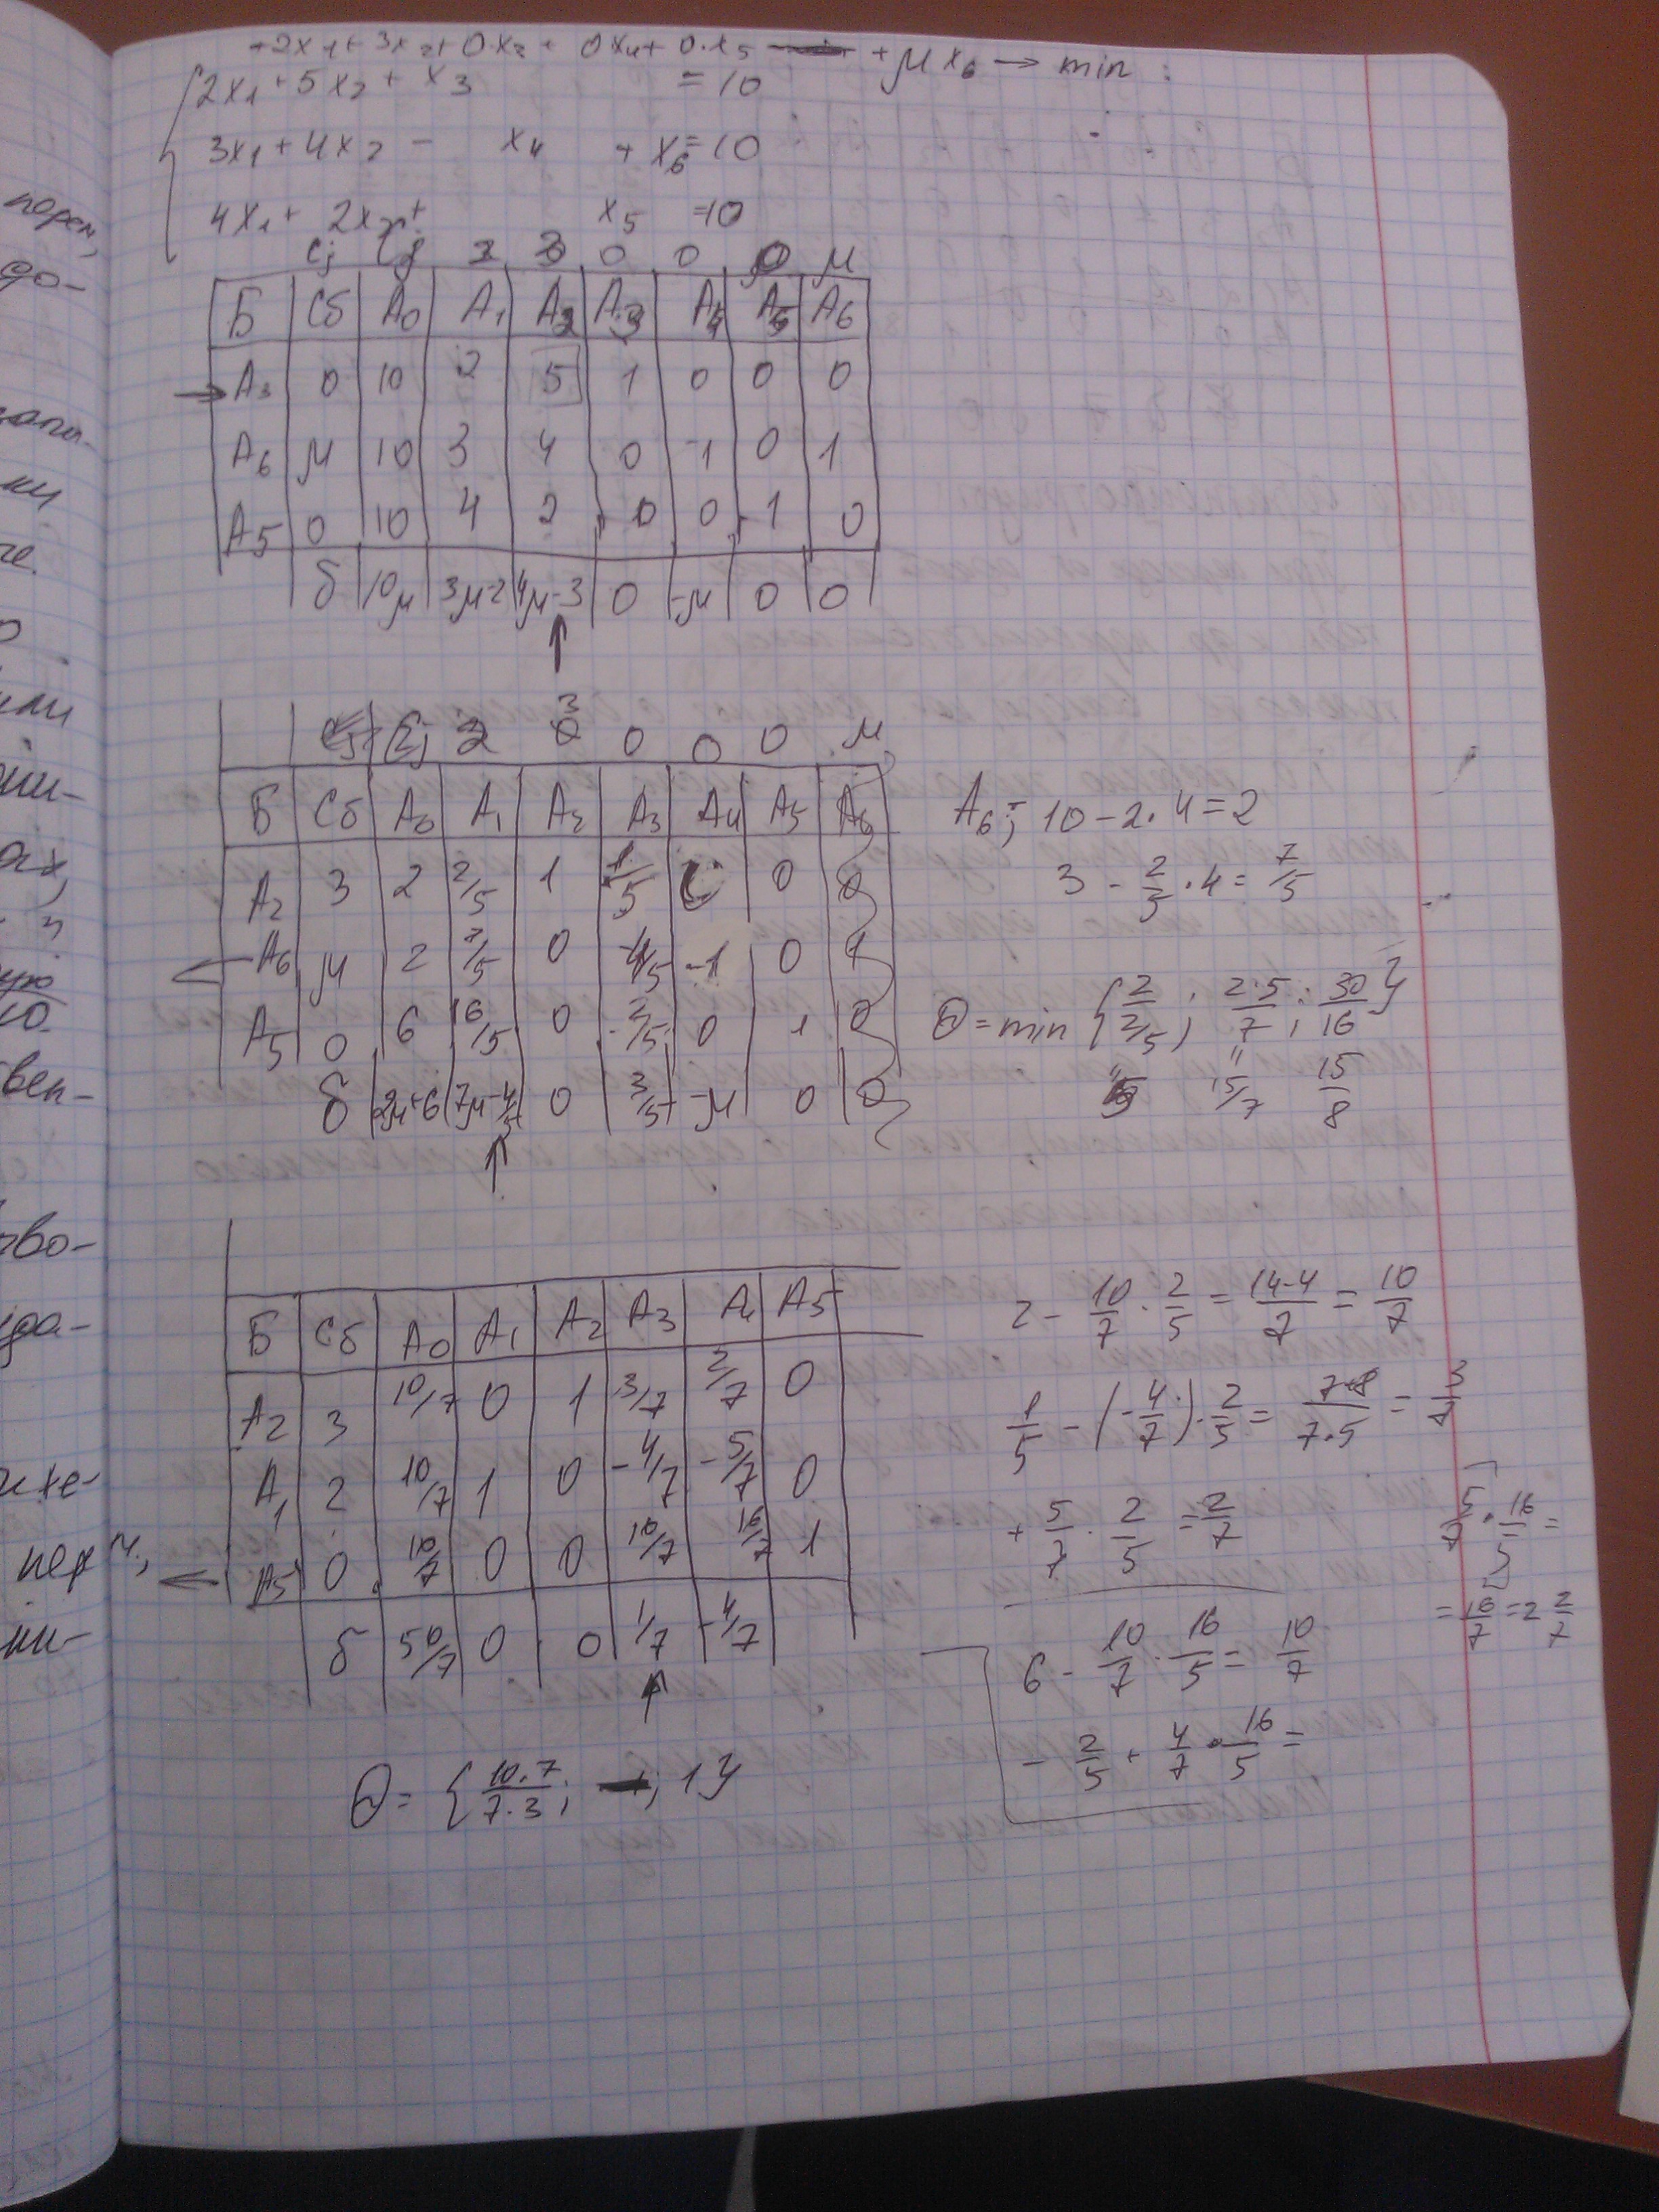 +2x₁+3x₂+0·x₃+0x₄+0·x₅ +μx₆ → min
2x₁+5x₂+x₃ =10
3x₁+4x₂ - x₄ + x₆=10
4x₁+ 2x₂+ x₅ =10
Cj 2 3 0 0 0 μ
Б Сб A₀ A₁ A₂ A₃ A₄ A₅ A₆
→ A₃ 0 10 2 5 1 0 0 0
A₆ μ 10 3 4 0 -1 0 1
A₅ 0 10 4 2 0 0 1 0
δ 10μ 3μ-2 4μ-3 0 -μ 0 0
↑
Cj 2 3 0 0 0 μ
Б Сб A₀ A₁ A₂ A₃ A₄ A₅ A₆
A₂ 3 2 2/5 1 1/5 0 0
← A₆ μ 2 7/5 0 -4/5 -1 0 1
A₅ 0 6 16/5 0 -2/5 0 1 0
δ 2μ+6 0 3/5 -μ 0 0
↑
A₆: 10-2·4=2
3 - 2/5·4= 7/5
Θ=min {2/2/5; 2·5/7; 30/16}
5 15/7 15/8
Б Сб A₀ A₁ A₂ A₃ A₄ A₅
A₂ 3 10/7 0 1 3/7 2/7 0
A₁ 2 10/7 1 0 -4/7 -5/7 0
← A₅ 0 10/7 0 0 10/7 16/7 1
δ 50/7 0 0 1/7 -4/7
↑
Θ= {10·7/7·3; ; 1}
2 - 10/7 · 2/5 = 14-4/7 = 10/7
1/5 - (-4/7)·2/5 = 7+8/7·5 = 3/7
+ 5/7 · 2/5 = 2/7
5/7 · 16/5 =
= 16/7 = 2 2/7
6 - 10/7 · 16/5 = 10/7
- 2/5 + 4/7 · 16/5 =